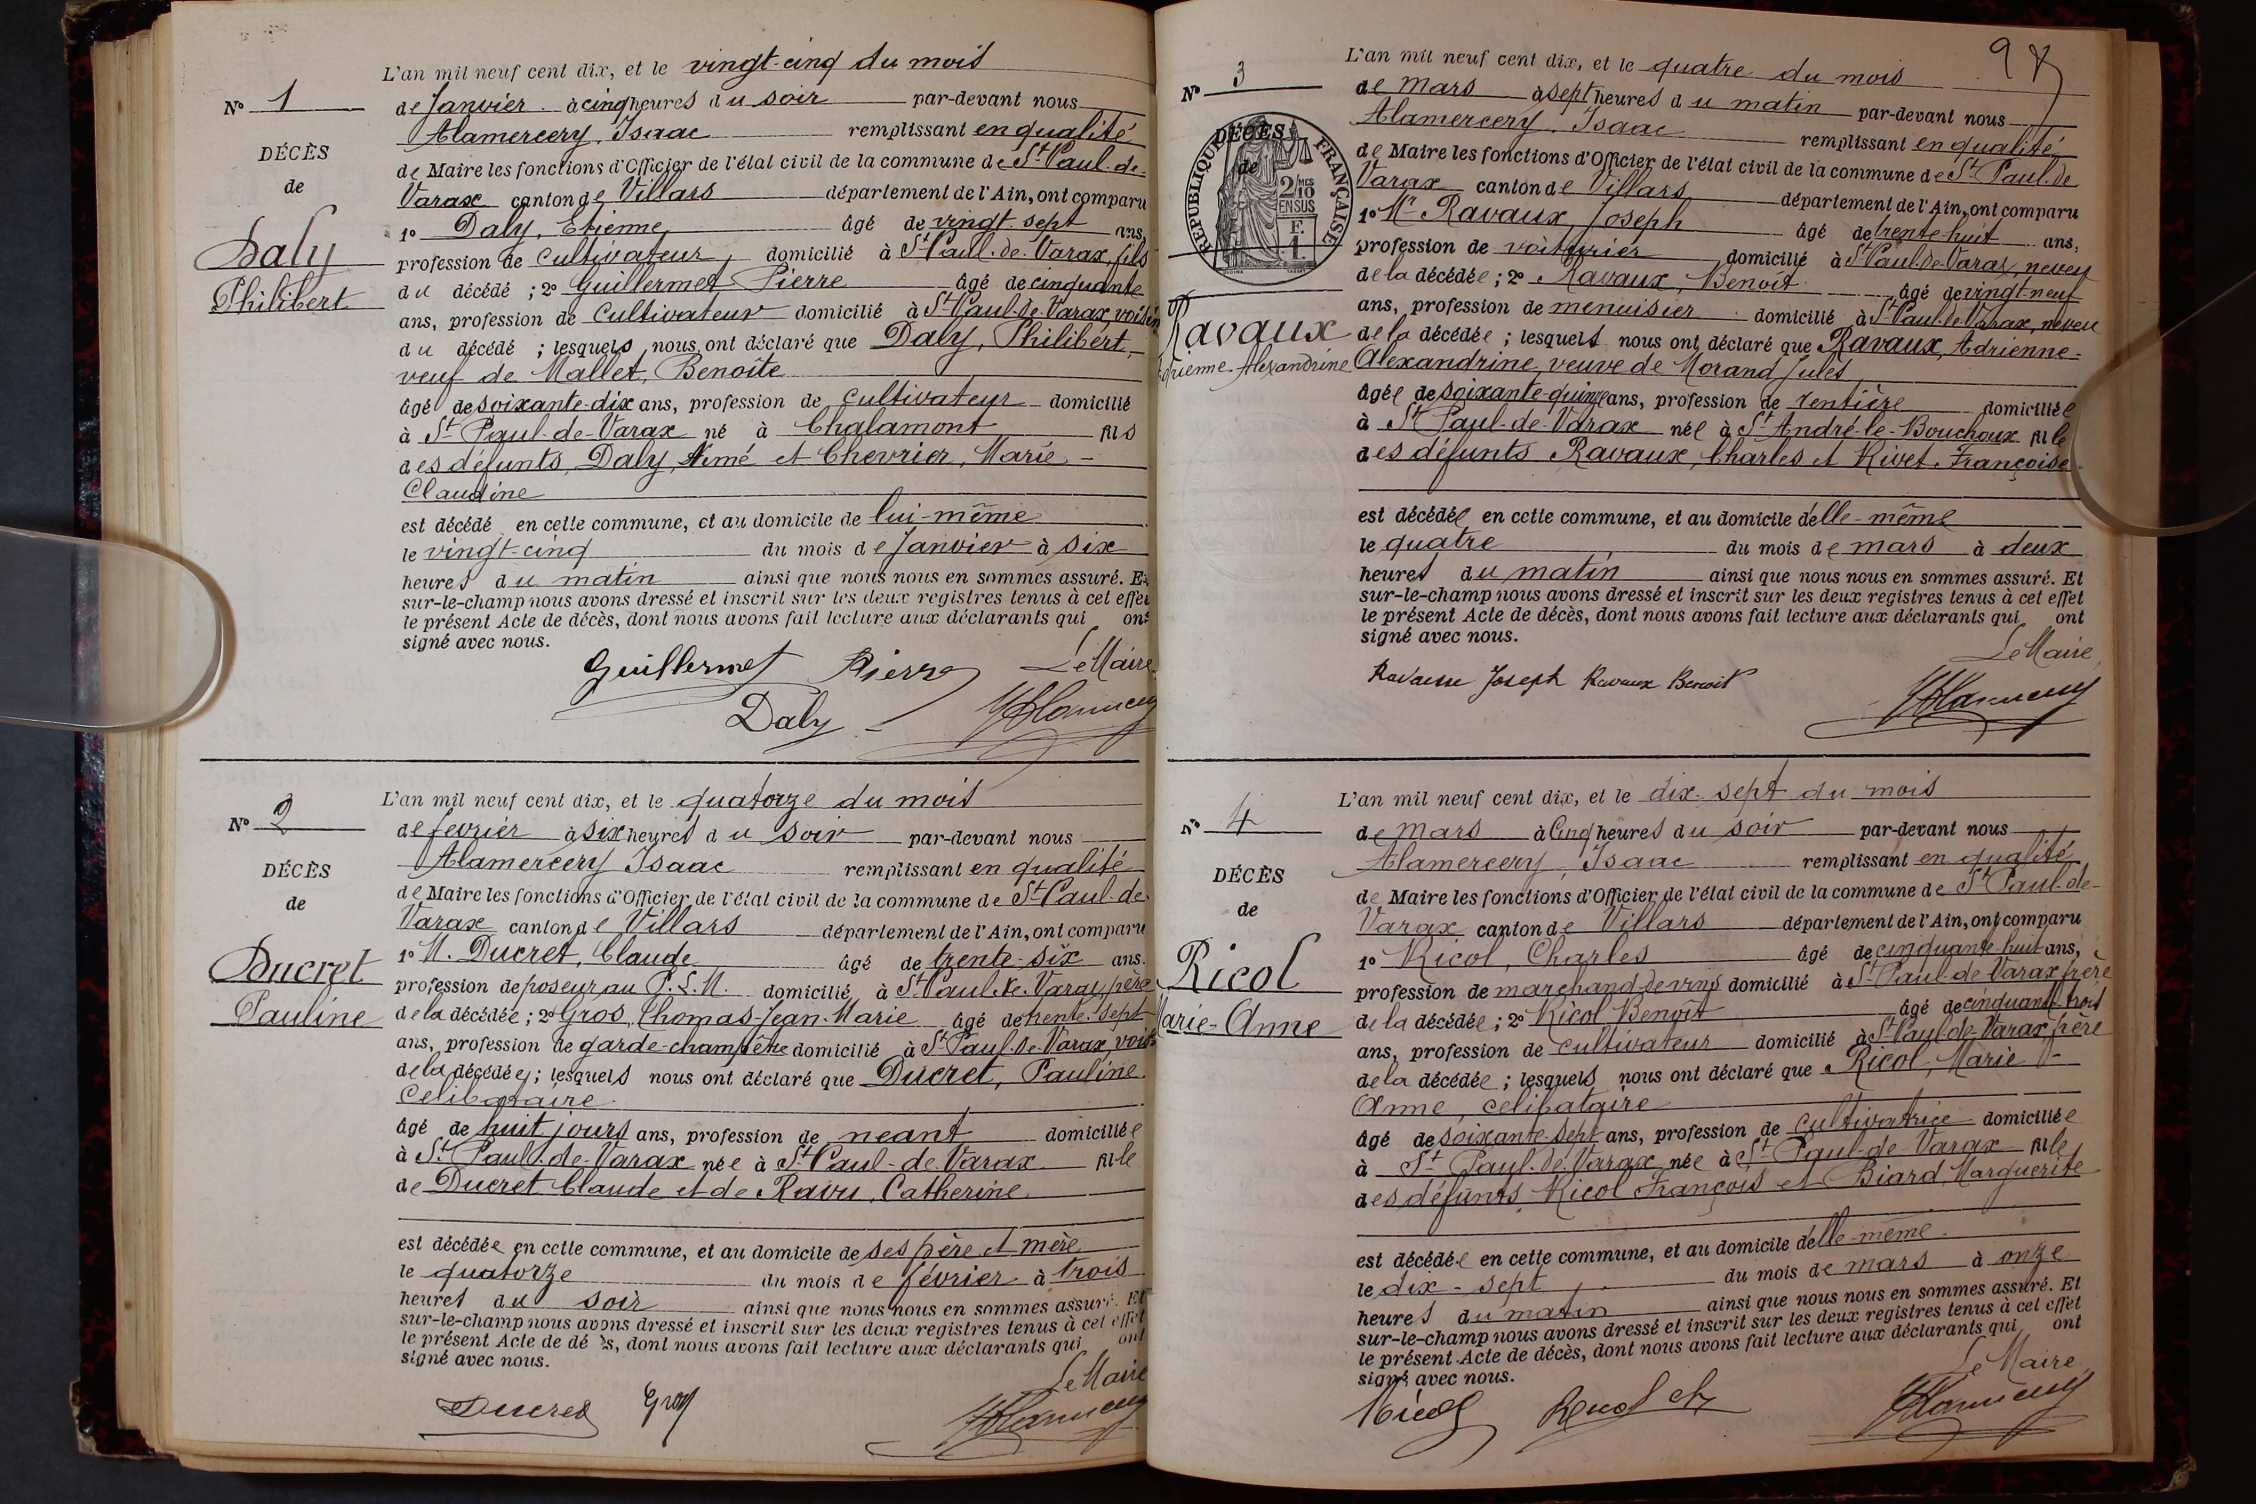 L'an mil neuf cent dix, et le vingt-cinq du mois
N° 1
de Janvier à cinq heures du soir par-devant nous
Alamercery, Isaac remplissant en qualité
DÉCÈS
de Maire les fonctions d'Officier de l'état civil de la commune de St Paul-de-
de
Varax canton de Villars département de l'Ain, ont comparu
1° Daly, Etienne âgé de vingt-sept ans,
Daly
profession de cultivateur, domicilié à St Paul-de-Varax, fils
Philibert
du décédé ; 2° Guillermet Pierre âgé de cinquante
ans, profession de cultivateur domicilié à St Paul-de-Varax, voisin
du décédé ; lesquels nous ont déclaré que Daly, Philibert,
veuf de Mallet, Benoîte
âgé de soixante-dix ans, profession de cultivateur domicilié
à St Paul-de-Varax né à Chalamont fils
des défunts Daly, Aimé et Chevrier, Marie-
Claudine
est décédé en cette commune, et au domicile de lui-même
le vingt-cinq du mois de Janvier à six
heures du matin ainsi que nous nous en sommes assuré. Et
sur-le-champ nous avons dressé et inscrit sur les deux registres tenus à cet effet
le présent Acte de décès, dont nous avons fait lecture aux déclarants qui ont
signé avec nous.
Guillermet Pierre Le Maire
Daly
L'an mil neuf cent dix, et le quatorze du mois
N° 2
de fevrier à six heures du soir par-devant nous
Alamercery Isaac remplissant en qualité
DÉCÈS
de Maire les fonctions d'Officier de l'état civil de la commune de St Paul-de-
de
Varax canton de Villars département de l'Ain, ont comparu
1° M. Ducret, Claude âgé de trente-six ans.
Ducret
profession de poseur au P.L.M. domicilié à St Paul-de-Varax, père
Pauline
de la décédée ; 2° Gros, Thomas-Jean-Marie âgé de trente-sept
ans, profession de garde-champêtre domicilié à St Paul-de-Varax, vois
de la décédée ; lesquels nous ont déclaré que Ducret, Pauline
Celibataire.
âgé de huit jours ans, profession de neant domiciliée
à St Paul-de-Varax née à St Paul-de-Varax fille
de Ducret Claude et de Ravu, Catherine
est décédée en cette commune, et au domicile de ses père et mère
le quatorze du mois de février à trois
heures du soir ainsi que nous nous en sommes assuré. Et
sur-le-champ nous avons dressé et inscrit sur les deux registres tenus à cet effet
le présent Acte de décès, dont nous avons fait lecture aux déclarants qui ont
signé avec nous.
Le Maire
Ducret Gros
98
L'an mil neuf cent dix, et le quatre du mois
N° 3
de mars à sept heures du matin par-devant nous
Alamercery, Isaac remplissant en qualité
DÉCÈS
RÉPUBLIQUE FRANÇAISE
de
2/10 MES
EN SUS
F.
1.
de Maire les fonctions d'Officier de l'état civil de la commune de St Paul-de
Varax canton de Villars département de l'Ain, ont comparu
1° Mr Ravaux, Joseph âgé de trente-huit ans,
profession de voiturier domicilié à St Paul-de-Varax, neveu
de la décédée ; 2° Ravaux, Benoît âgé de vingt-neuf
ans, profession de menuisier domicilié à St Paul-de-Varax, neveu
Ravaux
de la décédée ; lesquels nous ont déclaré que Ravaux, Adrienne-
Adrienne-Alexandrine
Alexandrine, veuve de Morand Jules
âgée de soixante-quinze ans, profession de rentière domiciliée
à St Paul-de-Varax née à St André-le-Bouchoux fille
des défunts Ravaux, Charles et Rivet, Françoise
est décédée en cette commune, et au domicile d'elle-même
le quatre du mois de mars à deux
heures du matin ainsi que nous nous en sommes assuré. Et
sur-le-champ nous avons dressé et inscrit sur les deux registres tenus à cet effet
le présent Acte de décès, dont nous avons fait lecture aux déclarants qui ont
signé avec nous.
Le Maire,
Ravaux Joseph Ravaux Benoit
L'an mil neuf cent dix, et le dix-sept du mois
N° 4
de mars à Cinq heures du soir par-devant nous
Alamercery, Isaac remplissant en qualité
DÉCÈS
de Maire les fonctions d'Officier de l'état civil de la commune de St Paul-de-
de
Varax canton de Villars département de l'Ain, ont comparu
1° Ricol, Charles âgé de cinquante-huit ans,
Ricol
profession de marchand de vins domicilié à St Paul-de-Varax frère
Marie-Anne
de la décédée ; 2° Ricol Benoît âgé de cinquante-trois
ans, profession de cultivateur domicilié à St Paul-de-Varax frère
de la décédée ; lesquels nous ont déclaré que Ricol, Marie-
Anne, celibataire
âgé de soixante-sept ans, profession de cultivatrice domiciliée
à St Paul-de-Varax née à St Paul-de-Varax fille
des défunts Ricol François et Biard, Marguerite
est décédée en cette commune, et au domicile d'elle-même
le dix-sept du mois de mars à onze
heures du matin ainsi que nous nous en sommes assuré. Et
sur-le-champ nous avons dressé et inscrit sur les deux registres tenus à cet effet
le présent Acte de décès, dont nous avons fait lecture aux déclarants qui ont
signé avec nous.
Le Maire
Ricol Ricol